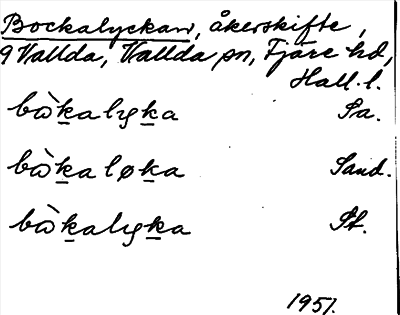 Bockalyckan, åkerskifte,
9 Vallda, Vallda sn, Fjäre hd,
Hall. l.
bò̀kalyka Sa.
bò̀kaløka Sand.
bò̀kalyka St.
1951.